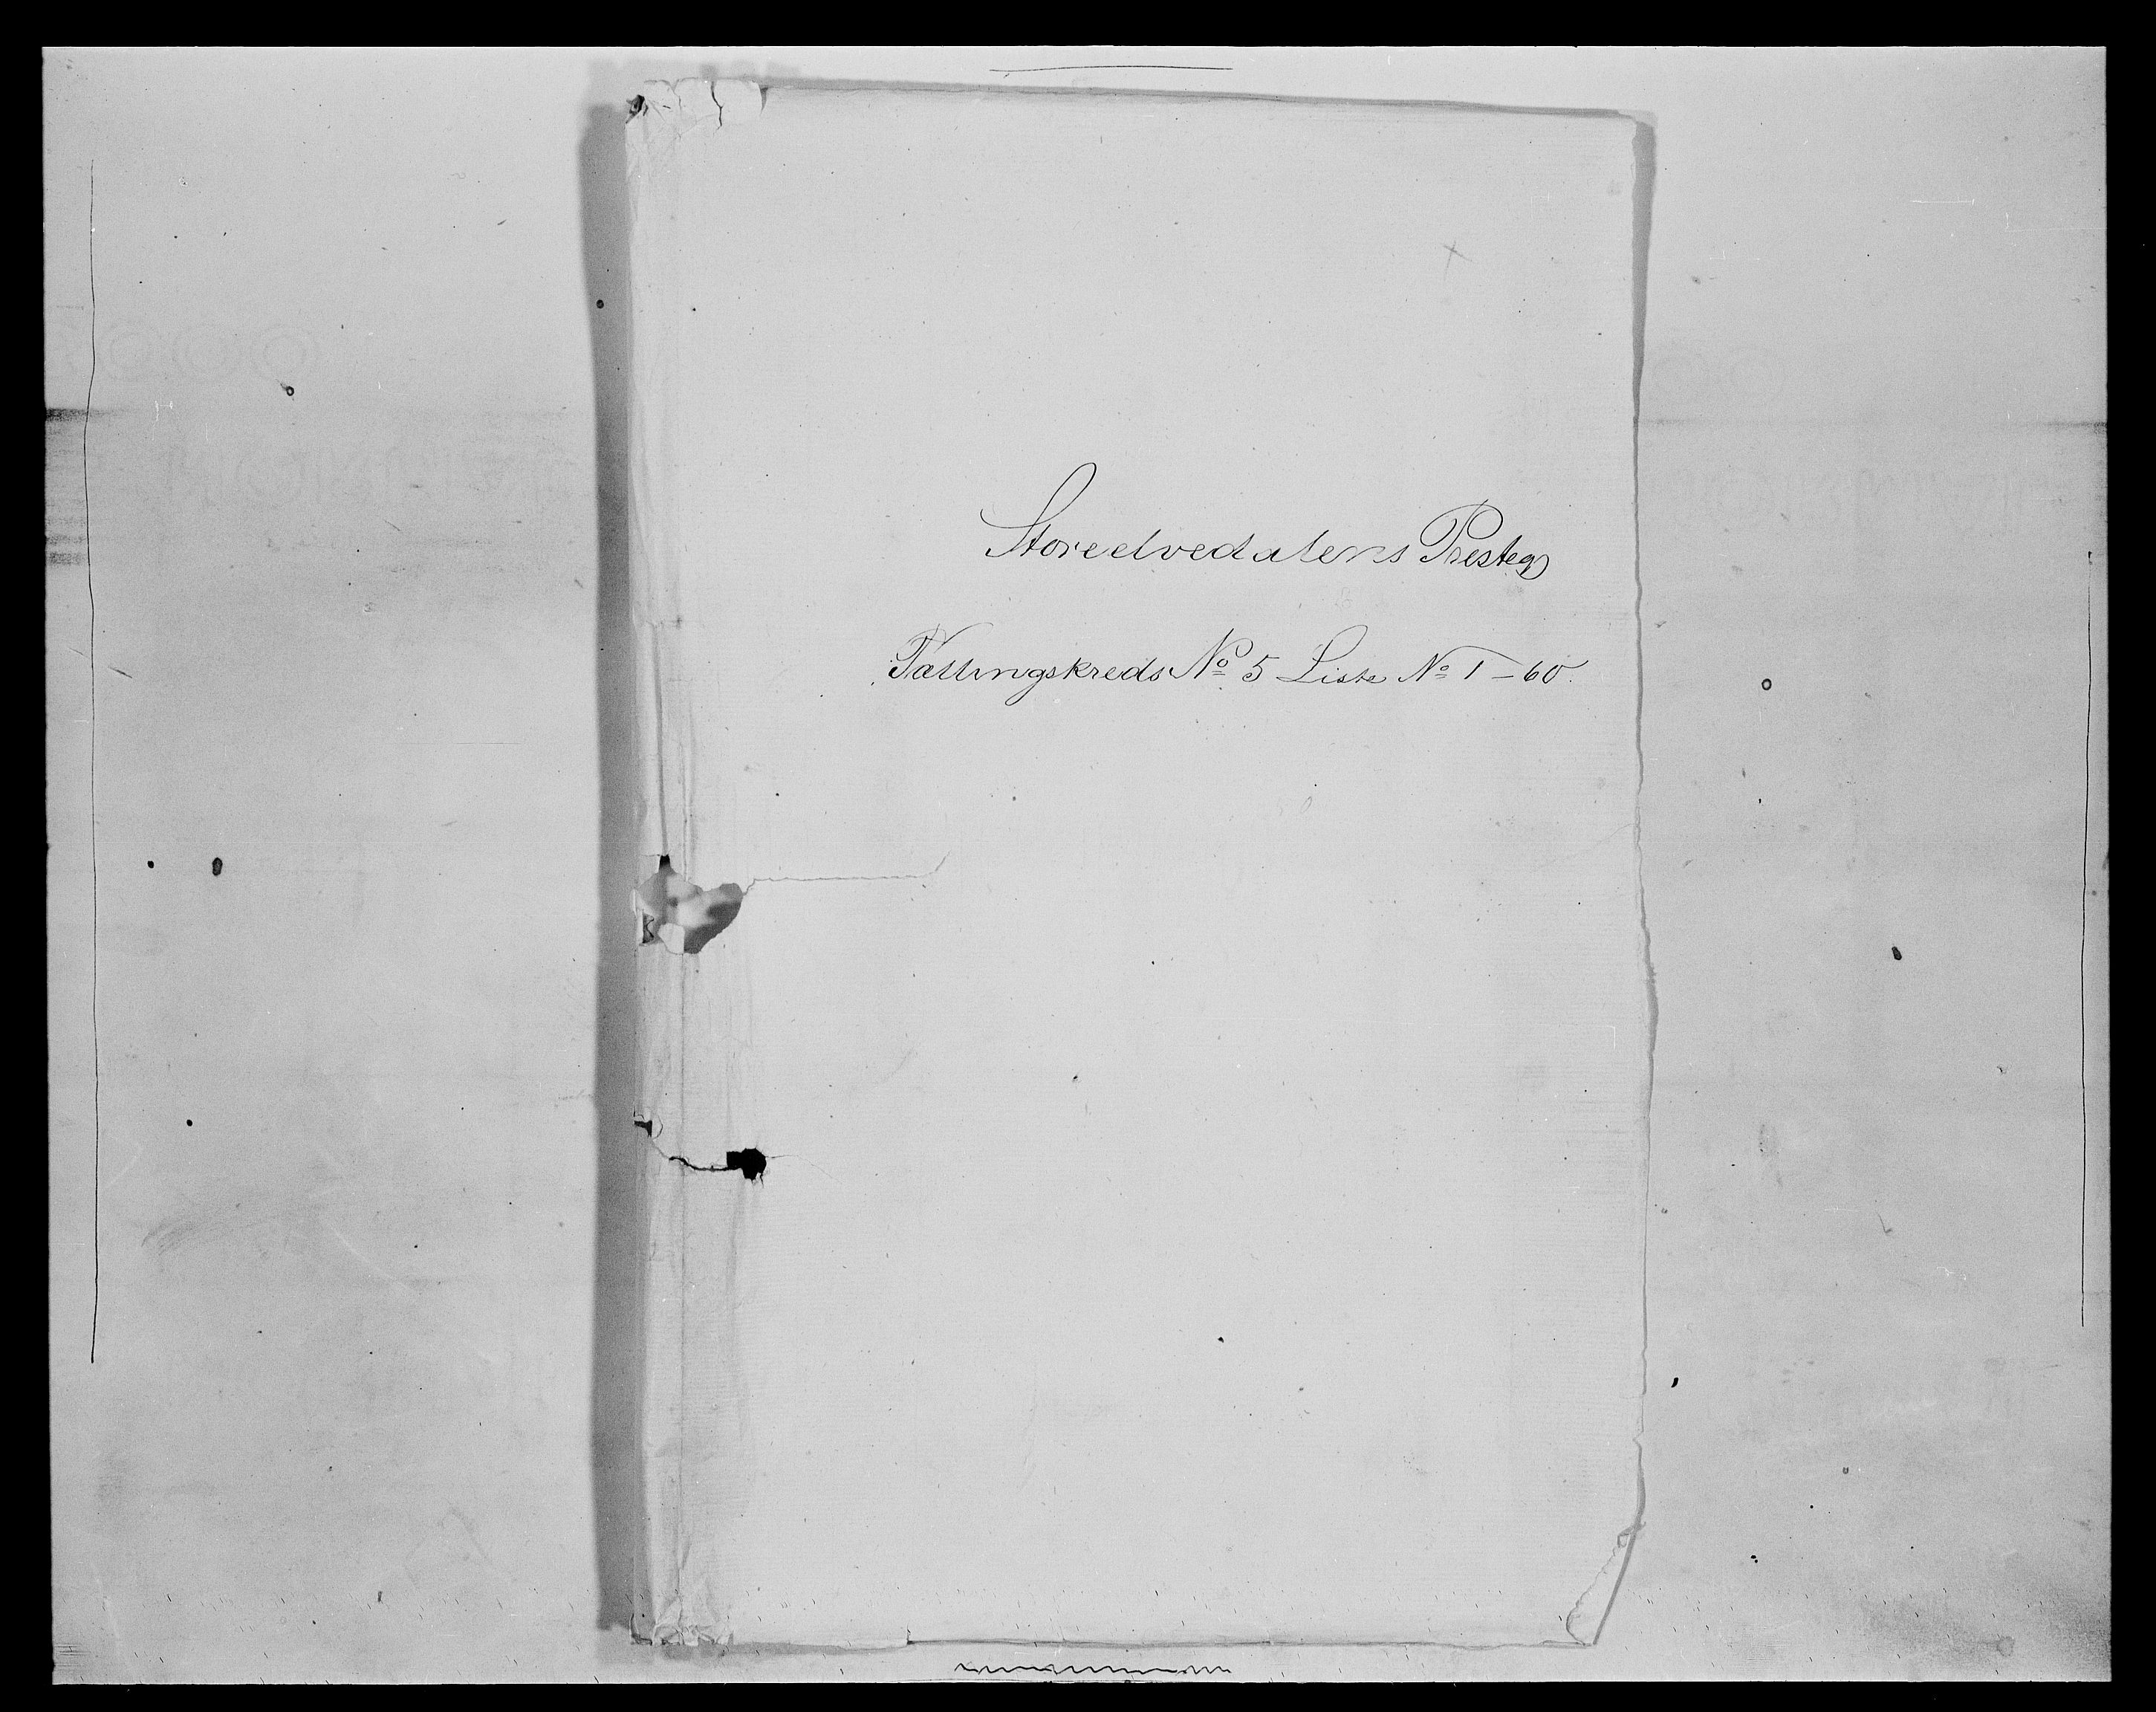 Storeelvedalens Presteg
Tællingskreds No 5 Liste No 1 – 60.